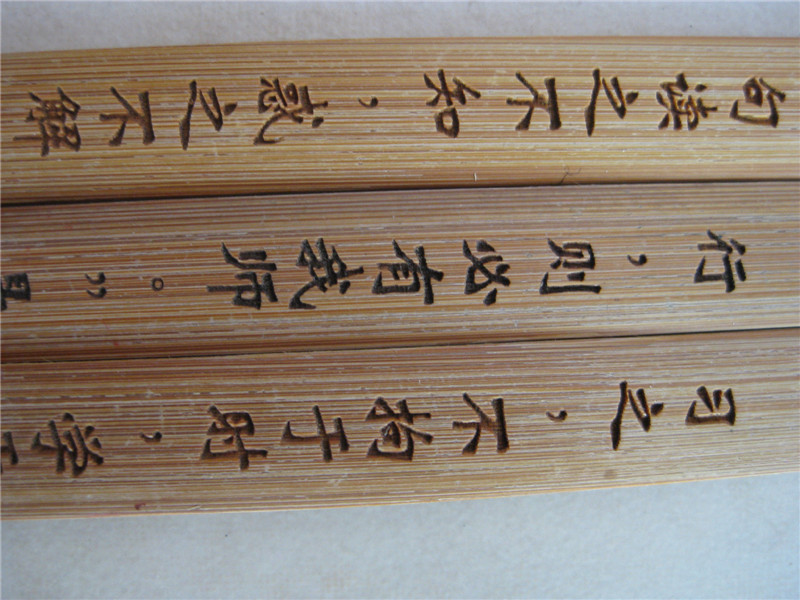 句读之不知，惑之不解
行，则必有我师。”
习之，不拘于时，学